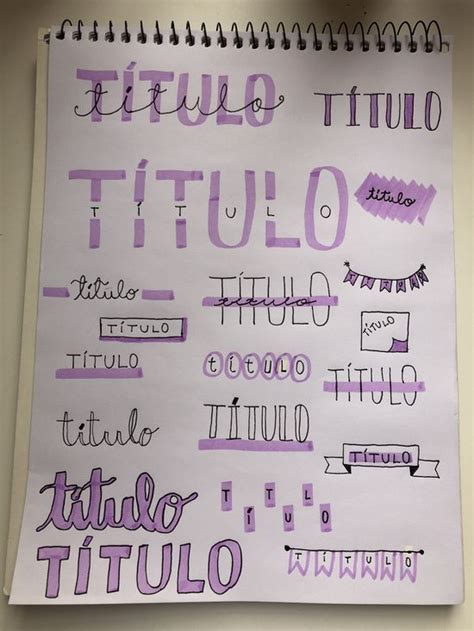 TÍTULO
título
TÍTULO
TÍTULO
T Í T U L O
título
título
TÍTULO
título
TÍTULO
TÍTULO
TÍTULO
TÍTULO
TÍTULO
título
TÍTULO
TÍTULO
título
T T L
Í U O
TÍTULO
TÍTULO